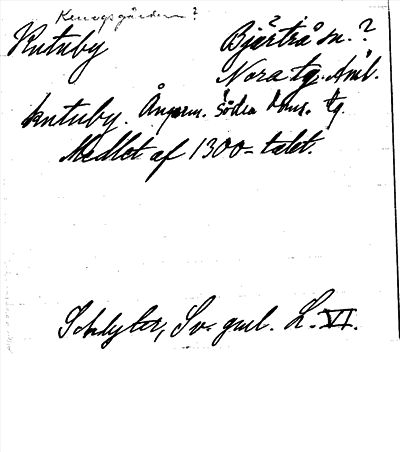 Kutuby Bjärtrå sn. ?
Nora tg. Ånl.
kutuby. Ångerm. Södra doms. tg.
Medlet af 1300-talet.
Schlyter, Sv. gml. L. VI.